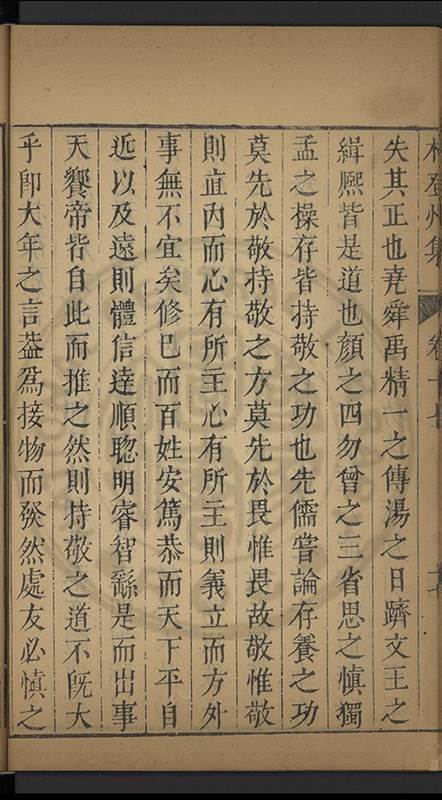 集
卷十七
失其正也堯舜禹精一之傳湯之日躋文王之
緝熈皆是道也顔之四勿曾之三省思之慎獨
孟之操存皆持敬之功也先儒嘗論存養之功
莫先於敬持敬之方莫先於畏惟畏故敬惟敬
則直内而心有所主心有所主則義立而方外
事無不宜矣修巳而百姓安篤恭而天下平自
近以及遠則體信達順聦明睿智繇是而出事
天饗帝皆自此而推之然則持敬之道不旣大
乎卽大年之言葢爲接物而發然處友必慎之